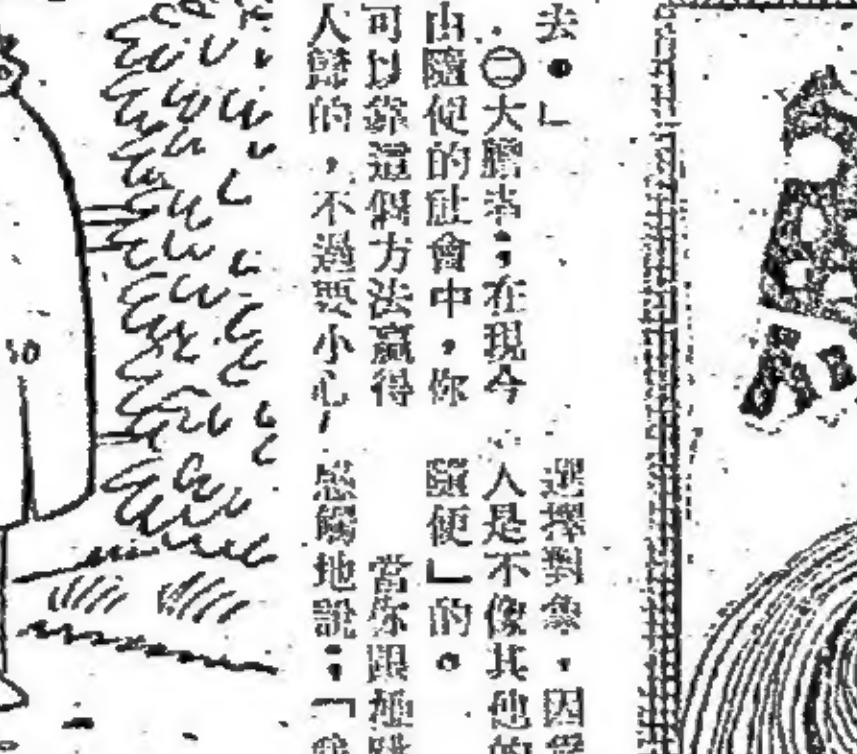 去。」
㊁大膽率;在現今
由隨便的社會中,你
可以靠這個方法贏得
人歸的,不過要小心!
選擇對象,因爲
人是不像其他的
隨便」的。
當你跟她
感觸地說:「我